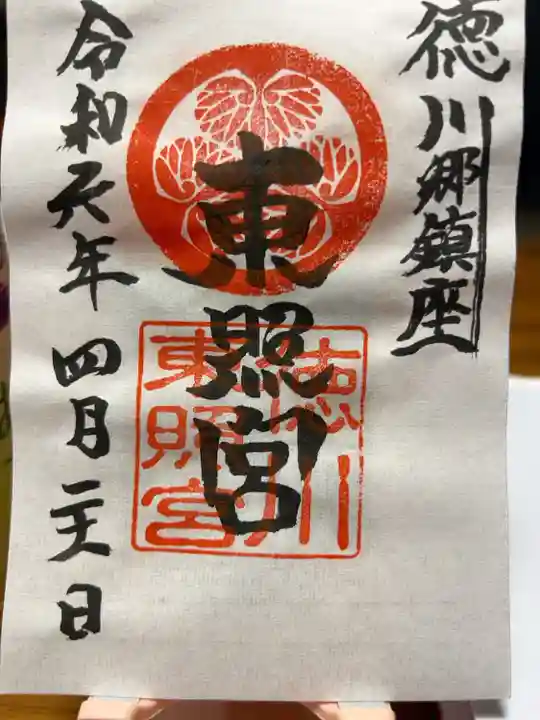 徳川郷鎮座
東照宮
令和六年 四月二十八日
徳川
東照宮